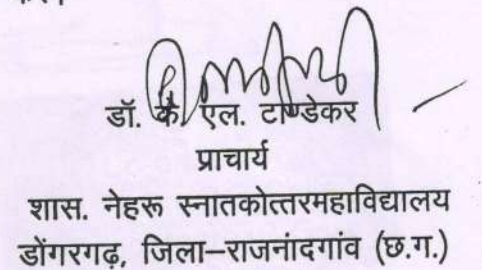 डॉ. के. एल. टाण्डेकर
प्राचार्य
शास. नेहरू स्नातकोत्तरमहाविद्यालय
डोंगरगढ़, जिला–राजनांदगांव (छ.ग.)